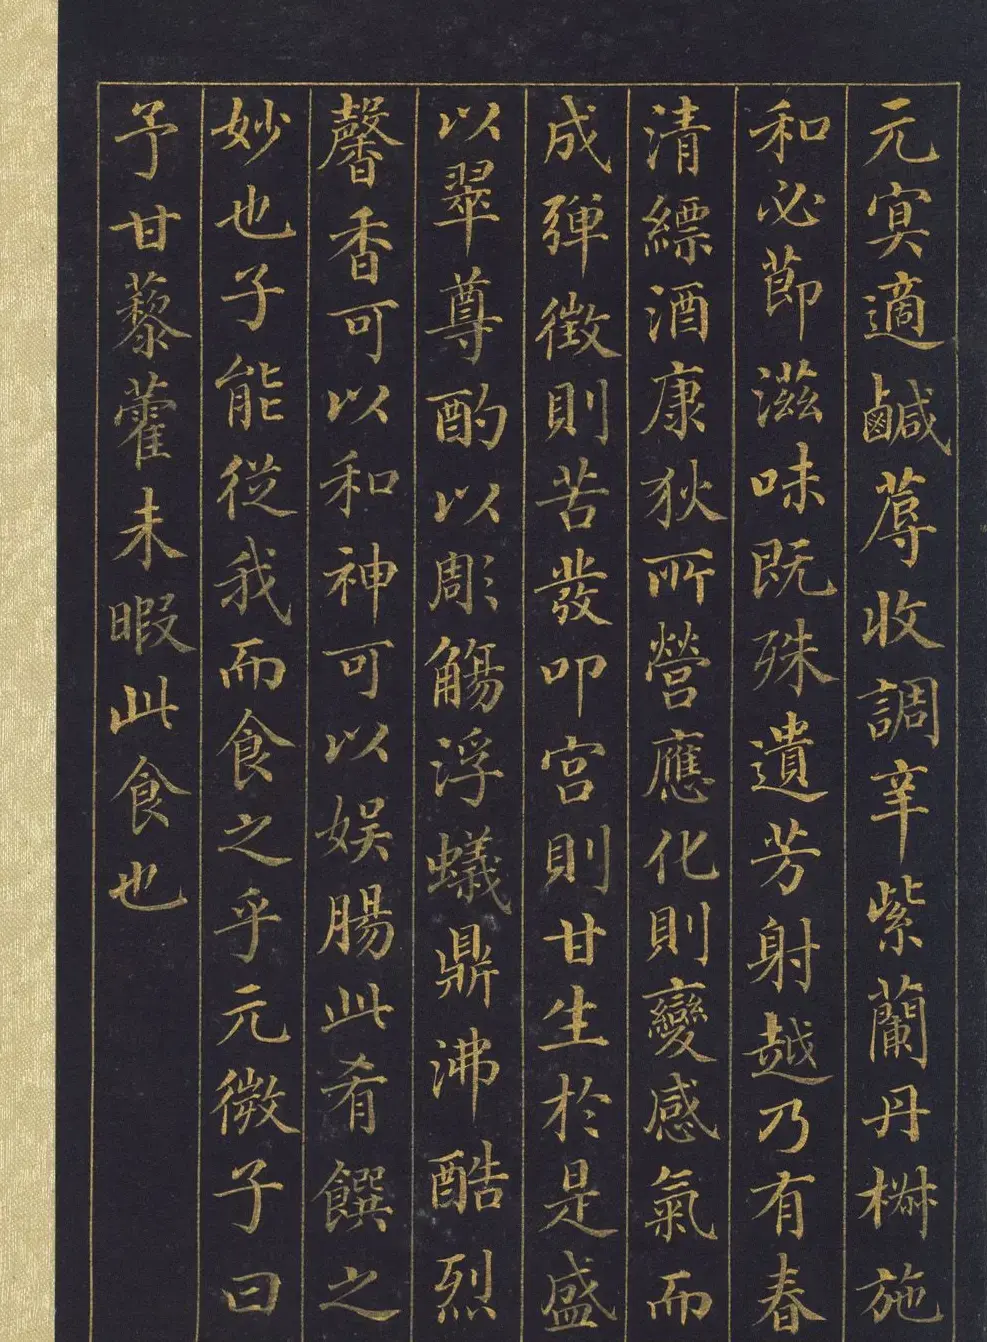 元冥適鹹蓐收調辛紫蘭丹椒施
和必節滋味既殊遺芳射越乃有春
清縹酒康狄所營應化則變感氣而
成彈徵則苦發叩宮則甘生於是盛
以翠尊酌以彫觴浮蟻鼎沸酷烈
馨香可以和神可以娛腸此肴饌之
妙也子能從我而食之乎元微子曰
予甘藜藿未暇此食也